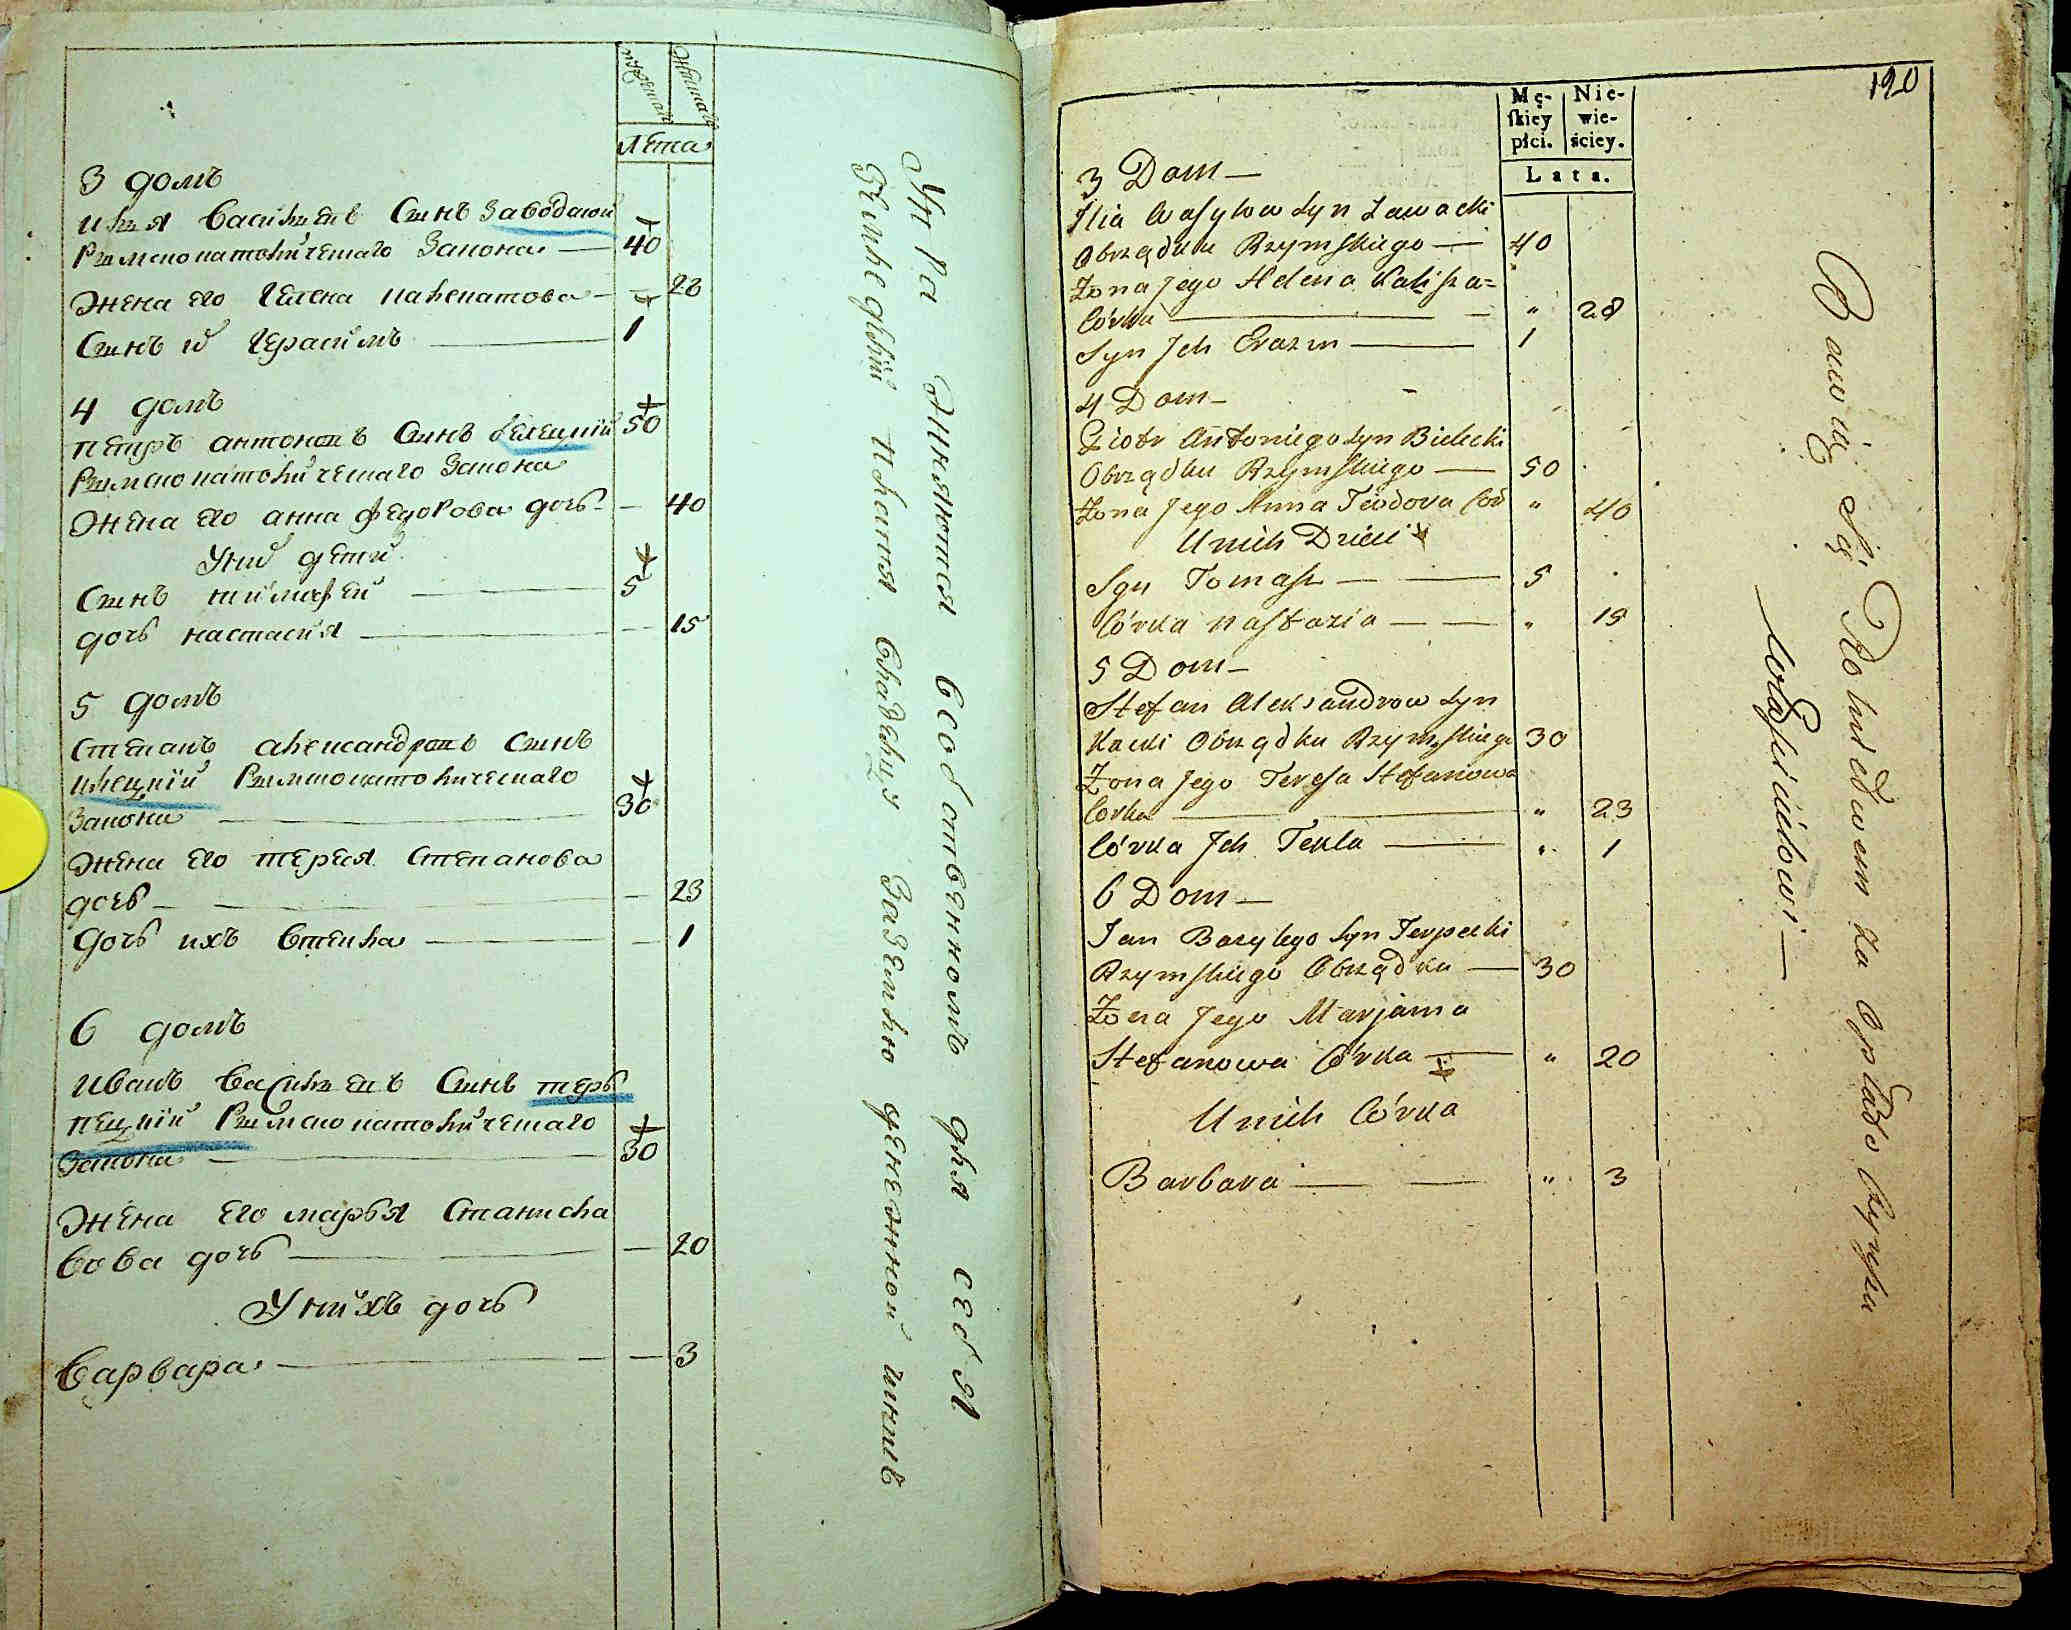 мужеска
женска
Лета
3 домъ
илья васильевъ синъ заводский
Римскокатоличеcкаго Закона — 40
жена его Гелена — 28
синъ ихъ Герасимъ — 1
4 домъ
петръ антоновъ синъ белецкий 50
Римскокатолическаго Закона
жена его анна федорова дочь — 40
У них дети
синъ тимофей — 5
дочь настасия — 15
5 домъ
степанъ александровъ синъ
Римскокатолическаго
Закона — 30
жена его тереся степанова
дочь — 23
дочь ихъ — 1
6 домъ
иванъ васильевъ синъ терь
пецкий Римскокатолическаго
Закона — 30
жена его марья Станисла
вова дочь — 20
У нихъ дочь
варвара — 3
в собственномъ для себя
земледелии платя владельцу за землю денежной чиншъ
120
Mę-
ſkiey
płci.
Nie-
wie-
ściey.
Lata.
3 Dom —
Ilia Wasylow Syn Zawacki
Obrządku Rzymskiego — 40
Żona Jego Helena
Córka — " 28
Syn Jch Erazm — 1
4 Dom —
Piotr Antoniego Syn Bielecki
Obrządku Rzymskiego — 50
Żona Jego Anna Teodora Cor " 40
U nich Dzieci
Syn Tomasz — 5
Córka Nastazia — " 15
5 Dom —
Stefan Aleksandrow Syn
Obrządku Rzymskiego 30
Żona Jego Teresa Stefanowa
Corka — " 23
Córka Jch Tekla — " 1
6 Dom —
Jan Bazylego Syn Terpecki
Rzymskiego Obrządku — 30
Żona Jego Marjanna
Stefanowa Córka — " 20
U nich Córka
Barbara — " 3
Bawią Się Rolnictwem za Opłatą Czynszu
Właścicielowi —